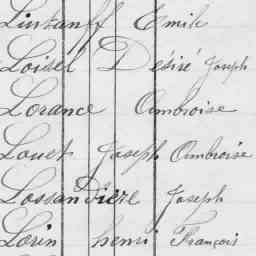 Linhanff Emile
Loisel Désiré Joseph
Lorance Ambroise
Louet Joseph Ambroise
Lossandiere Joseph
Lorin henri François